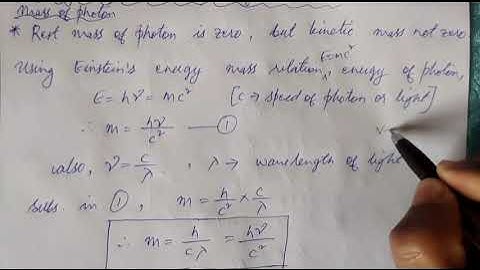 Mass of photon
* Rest mass of photon is zero, but kinetic mass not zero
Using Einstein's energy mass relation, E=mc², energy of photon,
E = hν = mc² [c → speed of photon or light]
∴ m = hν/c² —— ①
also, ν = c/λ, λ → wavelength of light
subs. in ①, m = h/c² × c/λ
∴ m = h/cλ = hν/c²